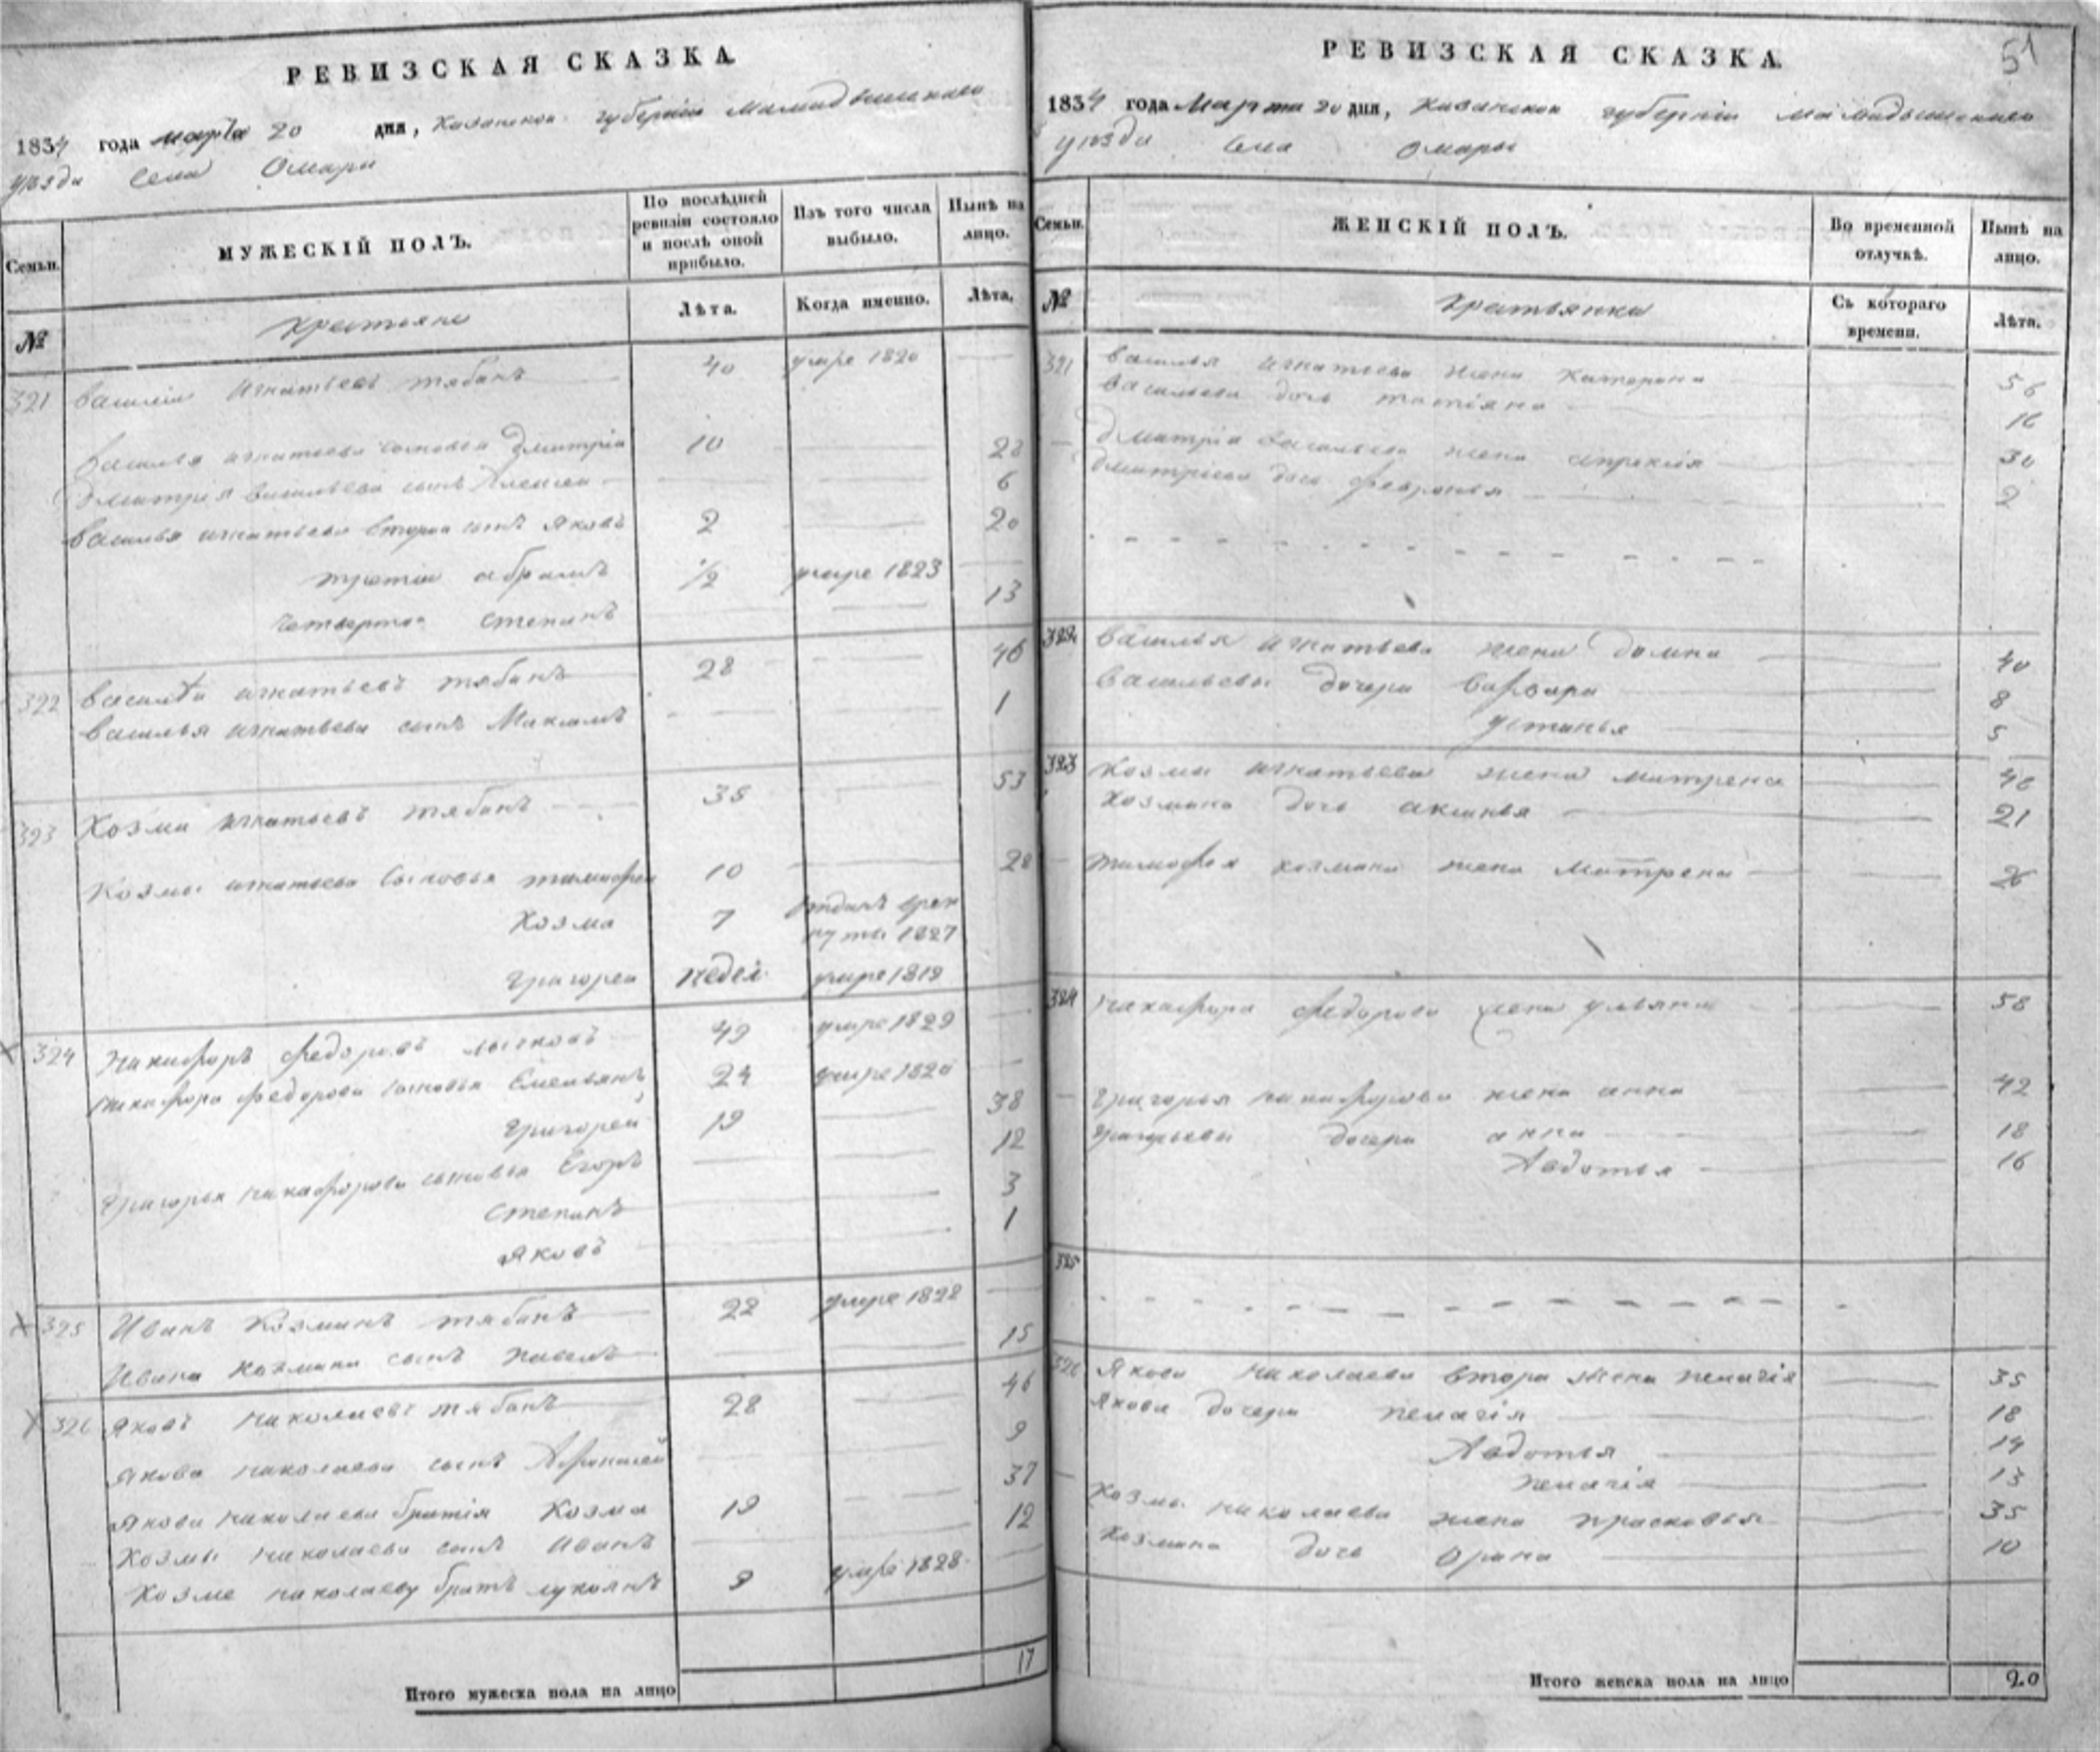 РЕВИЗСКАЯ СКАЗКА.
1834 года марта 20 дня, Казанской губернии мамадышскаго
уѣзда Села Омари
Семьи.
МУЖЕСКІЙ ПОЛЪ.
По послѣдней ревизіи состояло и послѣ оной прибыло.
Изъ того числа выбыло.
Нынѣ на лицо.
№
крестьяне
Лѣта.
Когда именно.
Лѣта.
321 Василии Игнатьевъ тябинъ 40 умре 1820
Василья игнатьева сыновья Дмитріи 10 28
Дмитрія васильева сынъ Алексеи 6
Василья игнатьева второи сынъ Яковъ 2 20
третіи абрамъ 1/2 умре 1823
четвертои степанъ 13
322 Василѣи игнатьевъ тябинъ 28 46
Василья игнатьева сынъ Максимъ 1
323 Козма игнатьевъ тябинъ 35 53
Козмы игнатьева сыновья тимофеи 10 28
Козма 7 отданъ врек
руты 1827
григореи недел умре 1819
324 Никифоръ федоровъ 49 умре 1829
Никифора федорова сыновья Емельянъ 24 умре 1820
григореи 19 38
Григорья никифорова сыновья Егоръ 12
степанъ 3
Яковъ 1
325 Иванъ Козминъ тябинъ 22 умре 1828
Ивана козмина сынъ павелъ 15
326 Яковъ николаевъ тябинъ 28 46
Якова николаева сынъ Афонасей 9
Якова николаева братія Козма 19 37
Козмы николаева сынъ иванъ 12
Козме николаеву братъ лукоянъ 9 умре 1828
Итого мужеска пола на лицо 17
51
РЕВИЗСКАЯ СКАЗКА.
1834 года Марта 20 дня, Казанской губерніи мамадышскаго
уѣзда Села Омары
Семьи.
ЖЕНСКІЙ ПОЛЪ.
Во временной отлучкѣ.
Нынѣ на лицо.
№
крестьянки
Съ котораго времени.
Лѣта.
321 Василья игнатьева жена катерина 56
Васильева дочь татіяна 16
Дмитріа васильева жена апроксія 30
Дмитріева дочь февронья 2
322 Василья игнатьева жена домна 40
Васильевы дочери варвара 8
устинья 5
323 Козмы игнатьева жена матрена 48
Козмина дочь аксинья 21
Тимофея козмина жена матрена 26
324 Никифора федорова жена ульяна 58
Григорья никифорова жена анна 42
Григорьевы дочери анна 18
Авдотья 16
325
326 Якова николаева втора жена пелагія 35
Якова дочери пелагія 18
Авдотья 14
пелагія 13
Козмы николаева жена прасковья 35
Козмина дочь орина 10
Итого женска пола на лицо 20